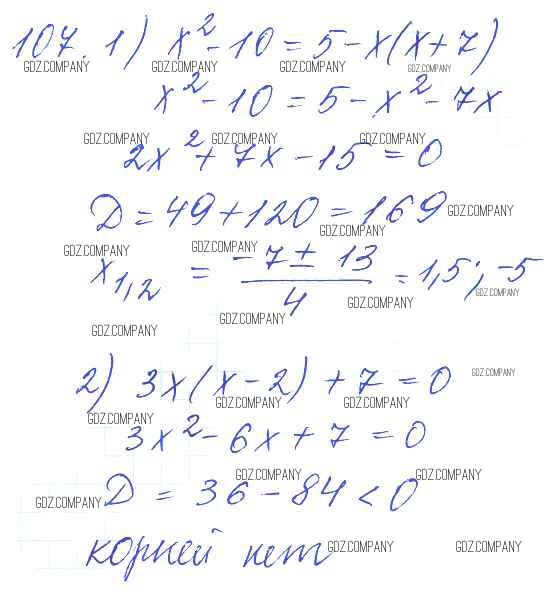 107. 1) x² - 10 = 5 - x(x + 7)
GDZ.COMPANY GDZ.COMPANY GDZ.COMPANY GDZ.COMPANY
x² - 10 = 5 - x² - 7x
GDZ.COMPANY GDZ.COMPANY GDZ.COMPANY
2x² + 7x - 15 = 0
Д = 49 + 120 = 169 GDZ.COMPANY
GDZ.COMPANY
GDZ.COMPANY GDZ.COMPANY
x₁,₂ = (-7 ± 13)/4 = 1,5; -5
GDZ.COMPANY
GDZ.COMPANY
GDZ.COMPANY
GDZ.COMPANY
2) 3x(x - 2) + 7 = 0 GDZ.COMPANY
GDZ.COMPANY GDZ.COMPANY
GDZ.COMPANY
3x² - 6x + 7 = 0
GDZ.COMPANY GDZ.COMPANY
Д = 36 - 84 < 0
GDZ.COMPANY
корней нет GDZ.COMPANY GDZ.COMPANY